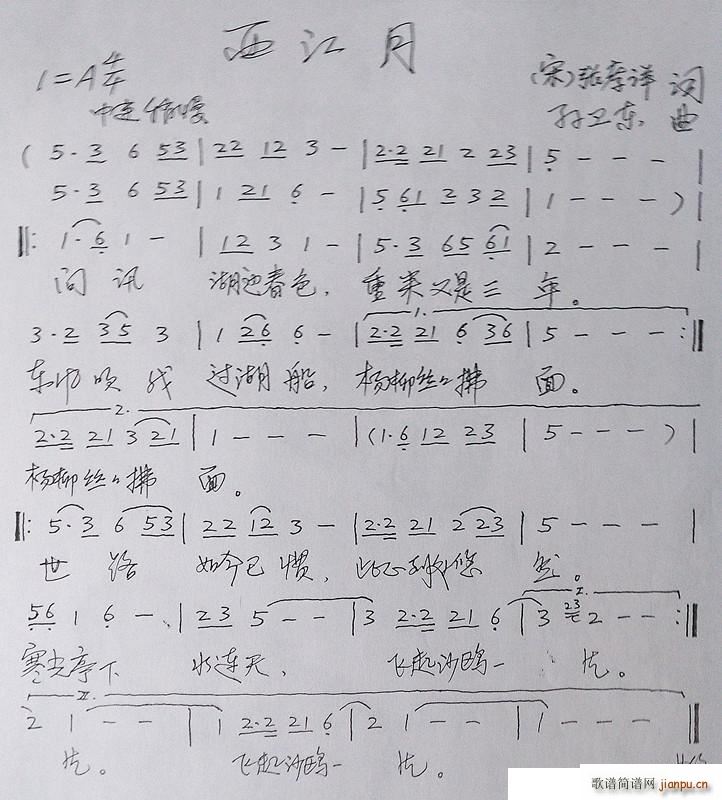 西江月
1=A 4/4
(宋)张孝祥 词
中速稍慢
孙卫东 曲
( 5· 3 6 53 | 22 12 3 - | 2·2 21 2 23 | 5 - - - |
5· 3 6 53 | 1 21 6 - | 5 61 2 3 2 | 1 - - - ) |
‖: 1· 6 1 - | 12 3 1 - | 5· 3 65 61 | 2 - - - |
问讯 湖边春色, 重来又是三 年。
1.
3· 2 35 3 | 1 26 6 - | 2·2 21 6 36 | 5 - - - :‖
东风吹我 过湖船, 杨柳丝丝拂 面。
2.
2·2 21 3 21 | 1 - - - | (1·6 12 23 | 5 - - - ) |
杨柳丝丝拂 面。
‖: 5· 3 6 53 | 22 12 3 - | 2·2 21 2 23 | 5 - - - |
世路 如今已惯, 此心到处悠 然。
I.
56 1 6 - | 23 5 - - | 3 2·2 21 6 | 3 23 2 - - :‖
寒光亭下 水连天, 飞起沙鸥一 片。
II.
2 1 - - | 1 2·2 21 6 | 2 1 - - | 1 - - - ‖
片。 飞起沙鸥一 片。
歌谱简谱网 jianpu.cn